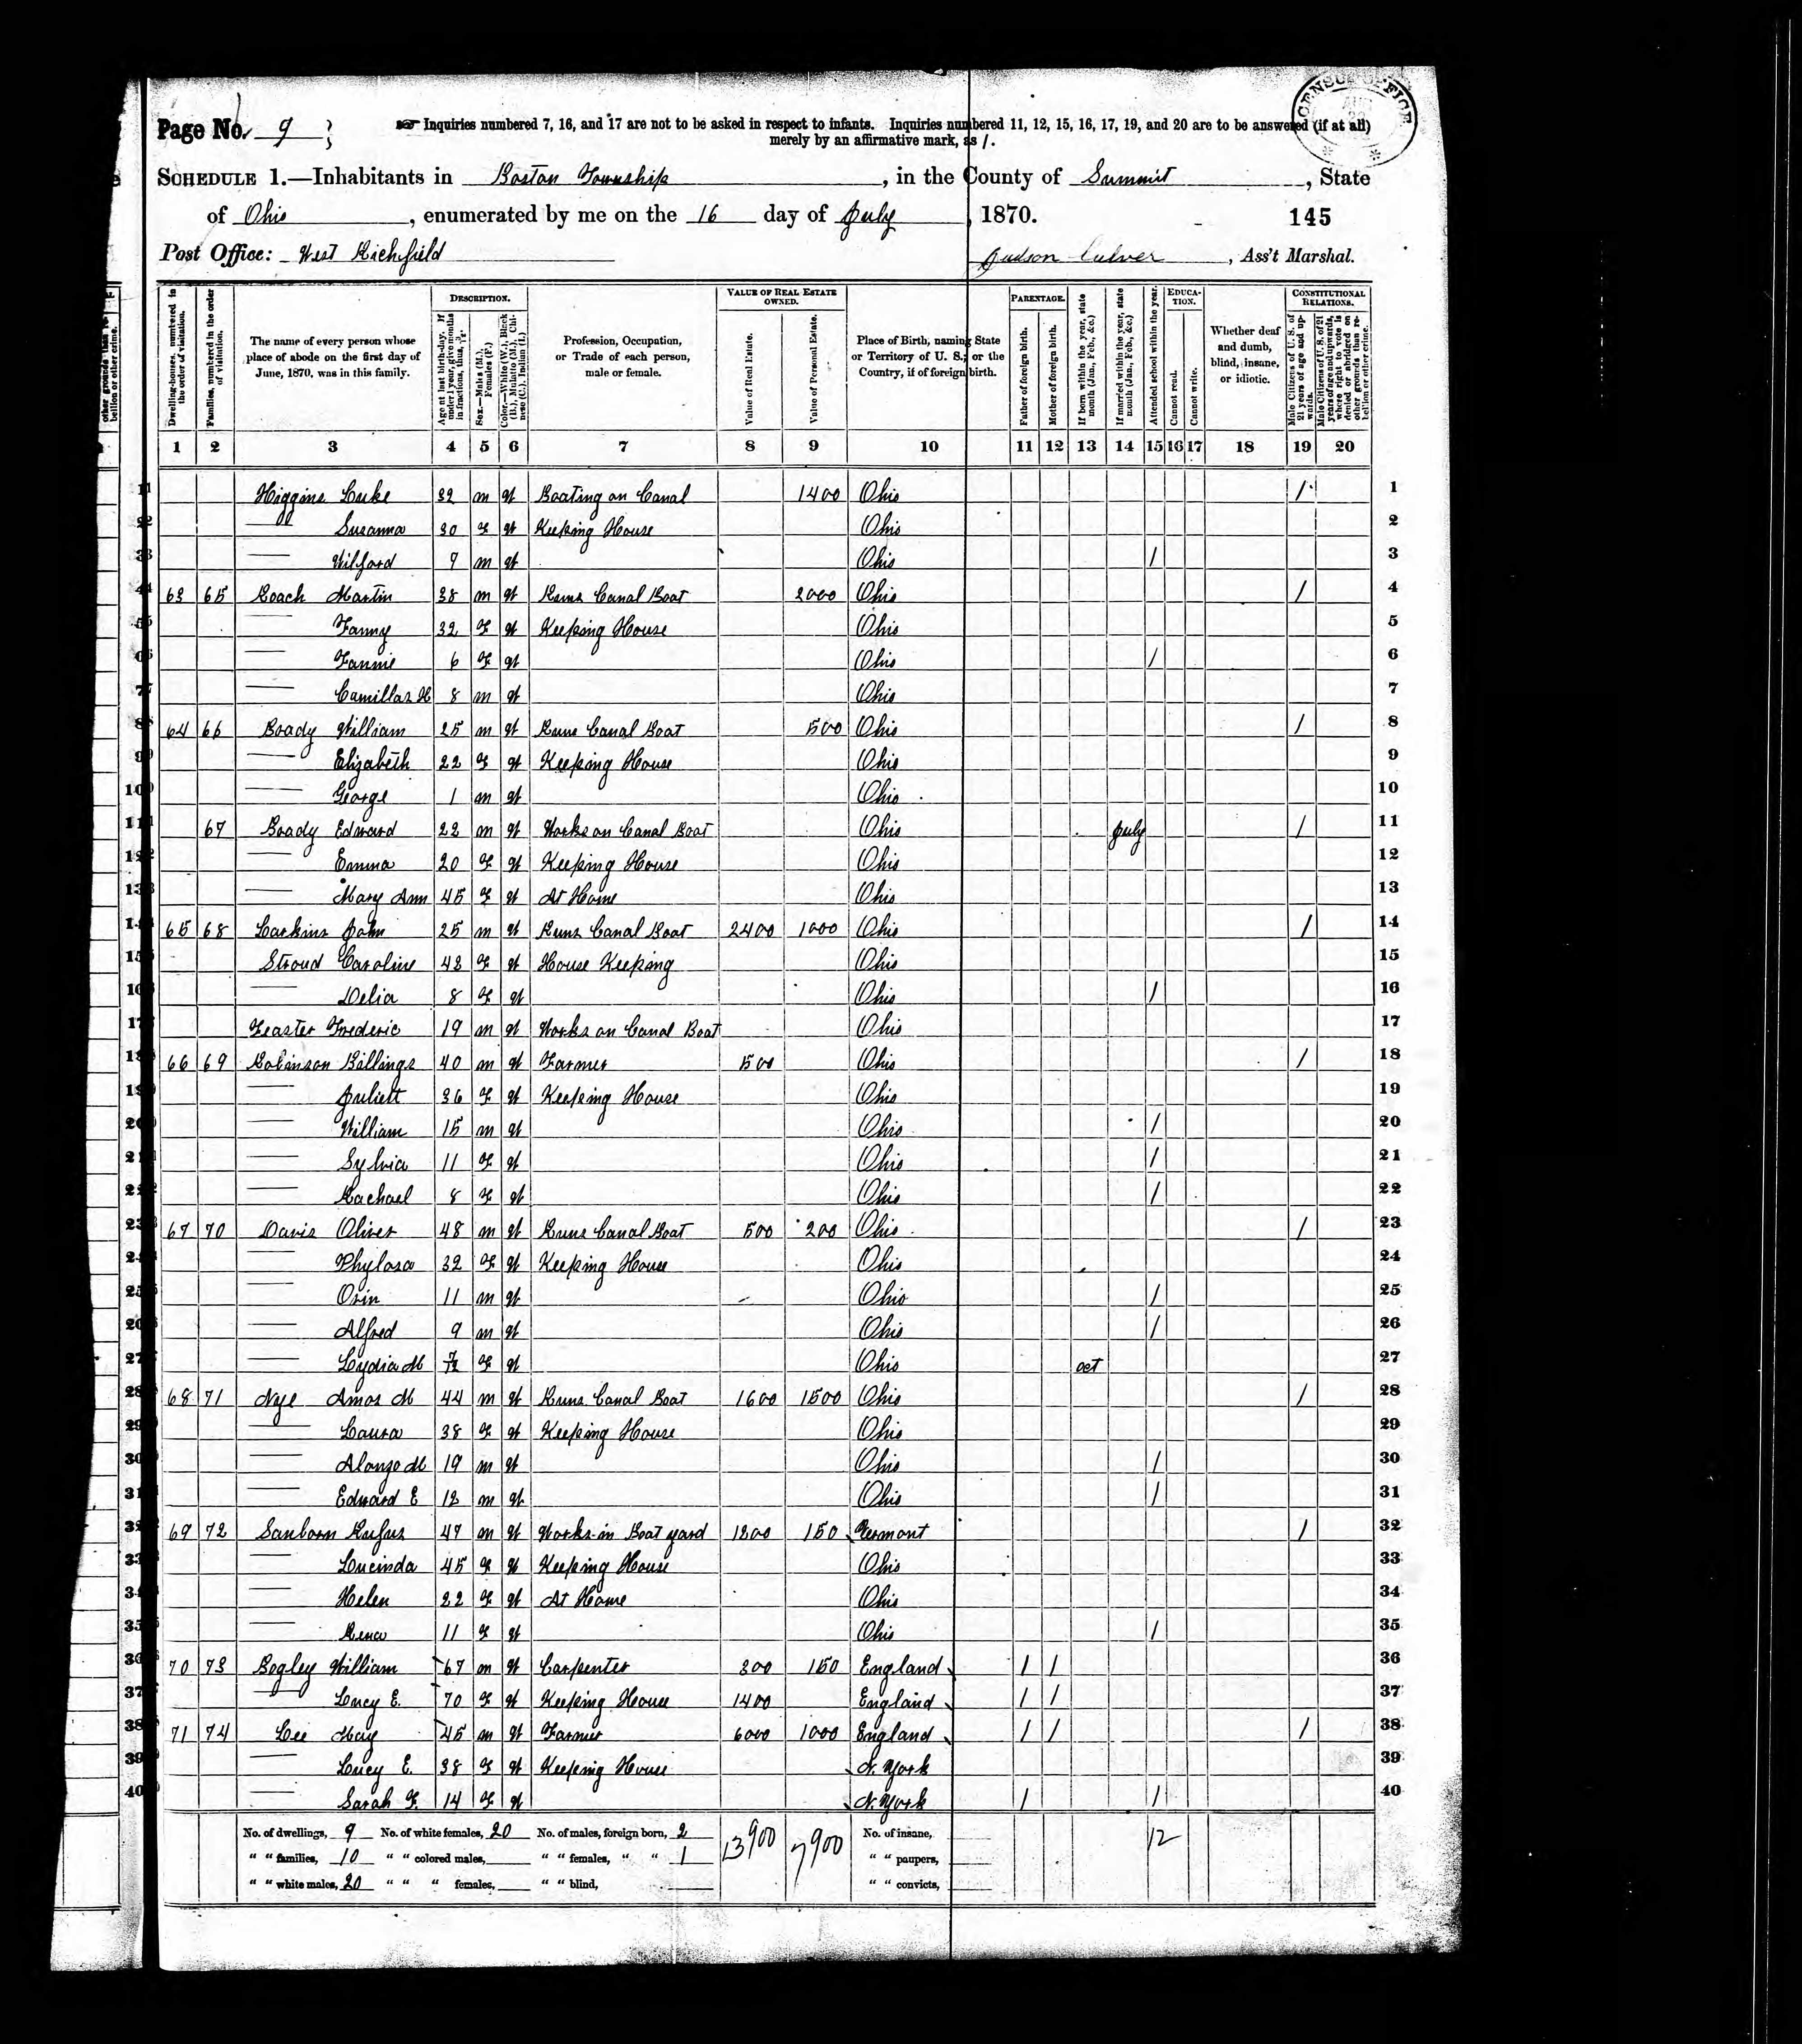 Page No. 9
Inquiries numbered 7, 16, and 17 are not to be asked in respect to infants. Inquiries numbered 11, 12, 15, 16, 17, 19, and 20 are to be answered (if at all)
merely by an affirmative mark, as /.
CENSUS OFFICE
SCHEDULE 1.—Inhabitants in Boston Township, in the County of Summit, State
of Ohio, enumerated by me on the 16 day of July, 1870. 145
Post Office: West Richfield Judson Culver, Ass't Marshal.
Dwelling-houses, numbered in the order of visitation.
Families, numbered in the order of visitation.
The name of every person whose place of abode on the first day of June, 1870, was in this family.
DESCRIPTION.
Age at last birth-day. If under 1 year, give months in fractions, thus,
Sex.—Males (M.), Females (F.)
Color.—White (W.), Black (B.), Mulatto (M.), Chinese (C.), Indian (I.)
Profession, Occupation, or Trade of each person, male or female.
VALUE OF REAL ESTATE OWNED.
Value of Real Estate.
Value of Personal Estate.
Place of Birth, naming State or Territory of U. S.; or the Country, if of foreign birth.
PARENTAGE.
Father of foreign birth.
Mother of foreign birth.
If born within the year, state month (Jan., Feb., &c.)
If married within the year, state month (Jan., Feb., &c.)
Attended school within the year.
EDUCATION.
Cannot read.
Cannot write.
Whether deaf and dumb, blind, insane, or idiotic.
CONSTITUTIONAL RELATIONS.
Male Citizens of U. S. of 21 years of age and upwards.
Male Citizens of U. S. of 21 years of age and upwards, where right to vote is denied or abridged on other grounds than rebellion or other crime.
1 2 3 4 5 6 7 8 9 10 11 12 13 14 15 16 17 18 19 20
1 Higgins Luke 32 m W Boating on Canal 1400 Ohio / 1
2 — Susanna 30 F W Keeping House Ohio 2
3 — Wilford 9 m W Ohio / 3
4 63 65 Roach Martin 38 m W Runs Canal Boat 2000 Ohio / 4
5 — Fanny 32 F W Keeping House Ohio 5
6 — Fannie 6 F W Ohio / 6
7 — Camillas H 8 m W Ohio 7
8 64 66 Brady William 25 m W Runs Canal Boat 500 Ohio / 8
9 — Elizabeth 22 F W Keeping House Ohio 9
10 — George 1 m W Ohio 10
11 67 Brady Edward 22 m W Works on Canal Boat Ohio July / 11
12 — Emma 20 F W Keeping House Ohio 12
13 — Mary Ann 45 F W At Home Ohio 13
14 65 68 Larkins John 25 m W Runs Canal Boat 2400 1000 Ohio / 14
15 Stroud Caroline 43 F W House Keeping Ohio 15
16 — Delia 8 F W Ohio / 16
17 Feaster Frederic 19 m W Works on Canal Boat Ohio 17
18 66 69 Robinson Billings 40 m W Farmer 500 Ohio / 18
19 — Juliett 36 F W Keeping House Ohio 19
20 — William 15 m W Ohio / 20
21 — Sylvia 11 F W Ohio / 21
22 — Rachael 8 F W Ohio / 22
23 67 70 Davis Oliver 48 m W Runs Canal Boat 500 200 Ohio / 23
24 — Phylora 32 F W Keeping House Ohio 24
25 — Orin 11 m W Ohio / 25
26 — Alfred 9 m W Ohio / 26
27 — Lydia M F W Ohio oct 27
28 68 71 Nye Amos M 44 m W Runs Canal Boat 1600 1500 Ohio / 28
29 — Laura 38 F W Keeping House Ohio 29
30 — Alonzo M 19 m W Ohio / 30
31 — Edward E 12 m W Ohio / 31
32 69 72 Sanborn Rufus 47 m W Works in Boat yard 1200 150 Vermont / 32
33 — Lucinda 45 F W Keeping House Ohio 33
34 — Helen 22 F W At Home Ohio 34
35 — Rena 11 F W Ohio / 35
36 70 73 Bogley William 67 m W Carpenter 300 150 England / / 36
37 — Lucy E. 70 F W Keeping House 1400 England / / 37
38 71 74 Lee May 45 m W Farmer 6000 1000 England / / / 38
39 — Lucy E. 38 F W Keeping House N. York 39
40 — Sarah F. 14 F W N. York / / 40
No. of dwellings, 9 No. of white females, 20 No. of males, foreign born, 2 13900 7900 No. of insane, 12
" " families, 10 " " colored males, " " females, " " 1 " " paupers,
" " white males, 20 " " " females, " " blind, " " convicts,